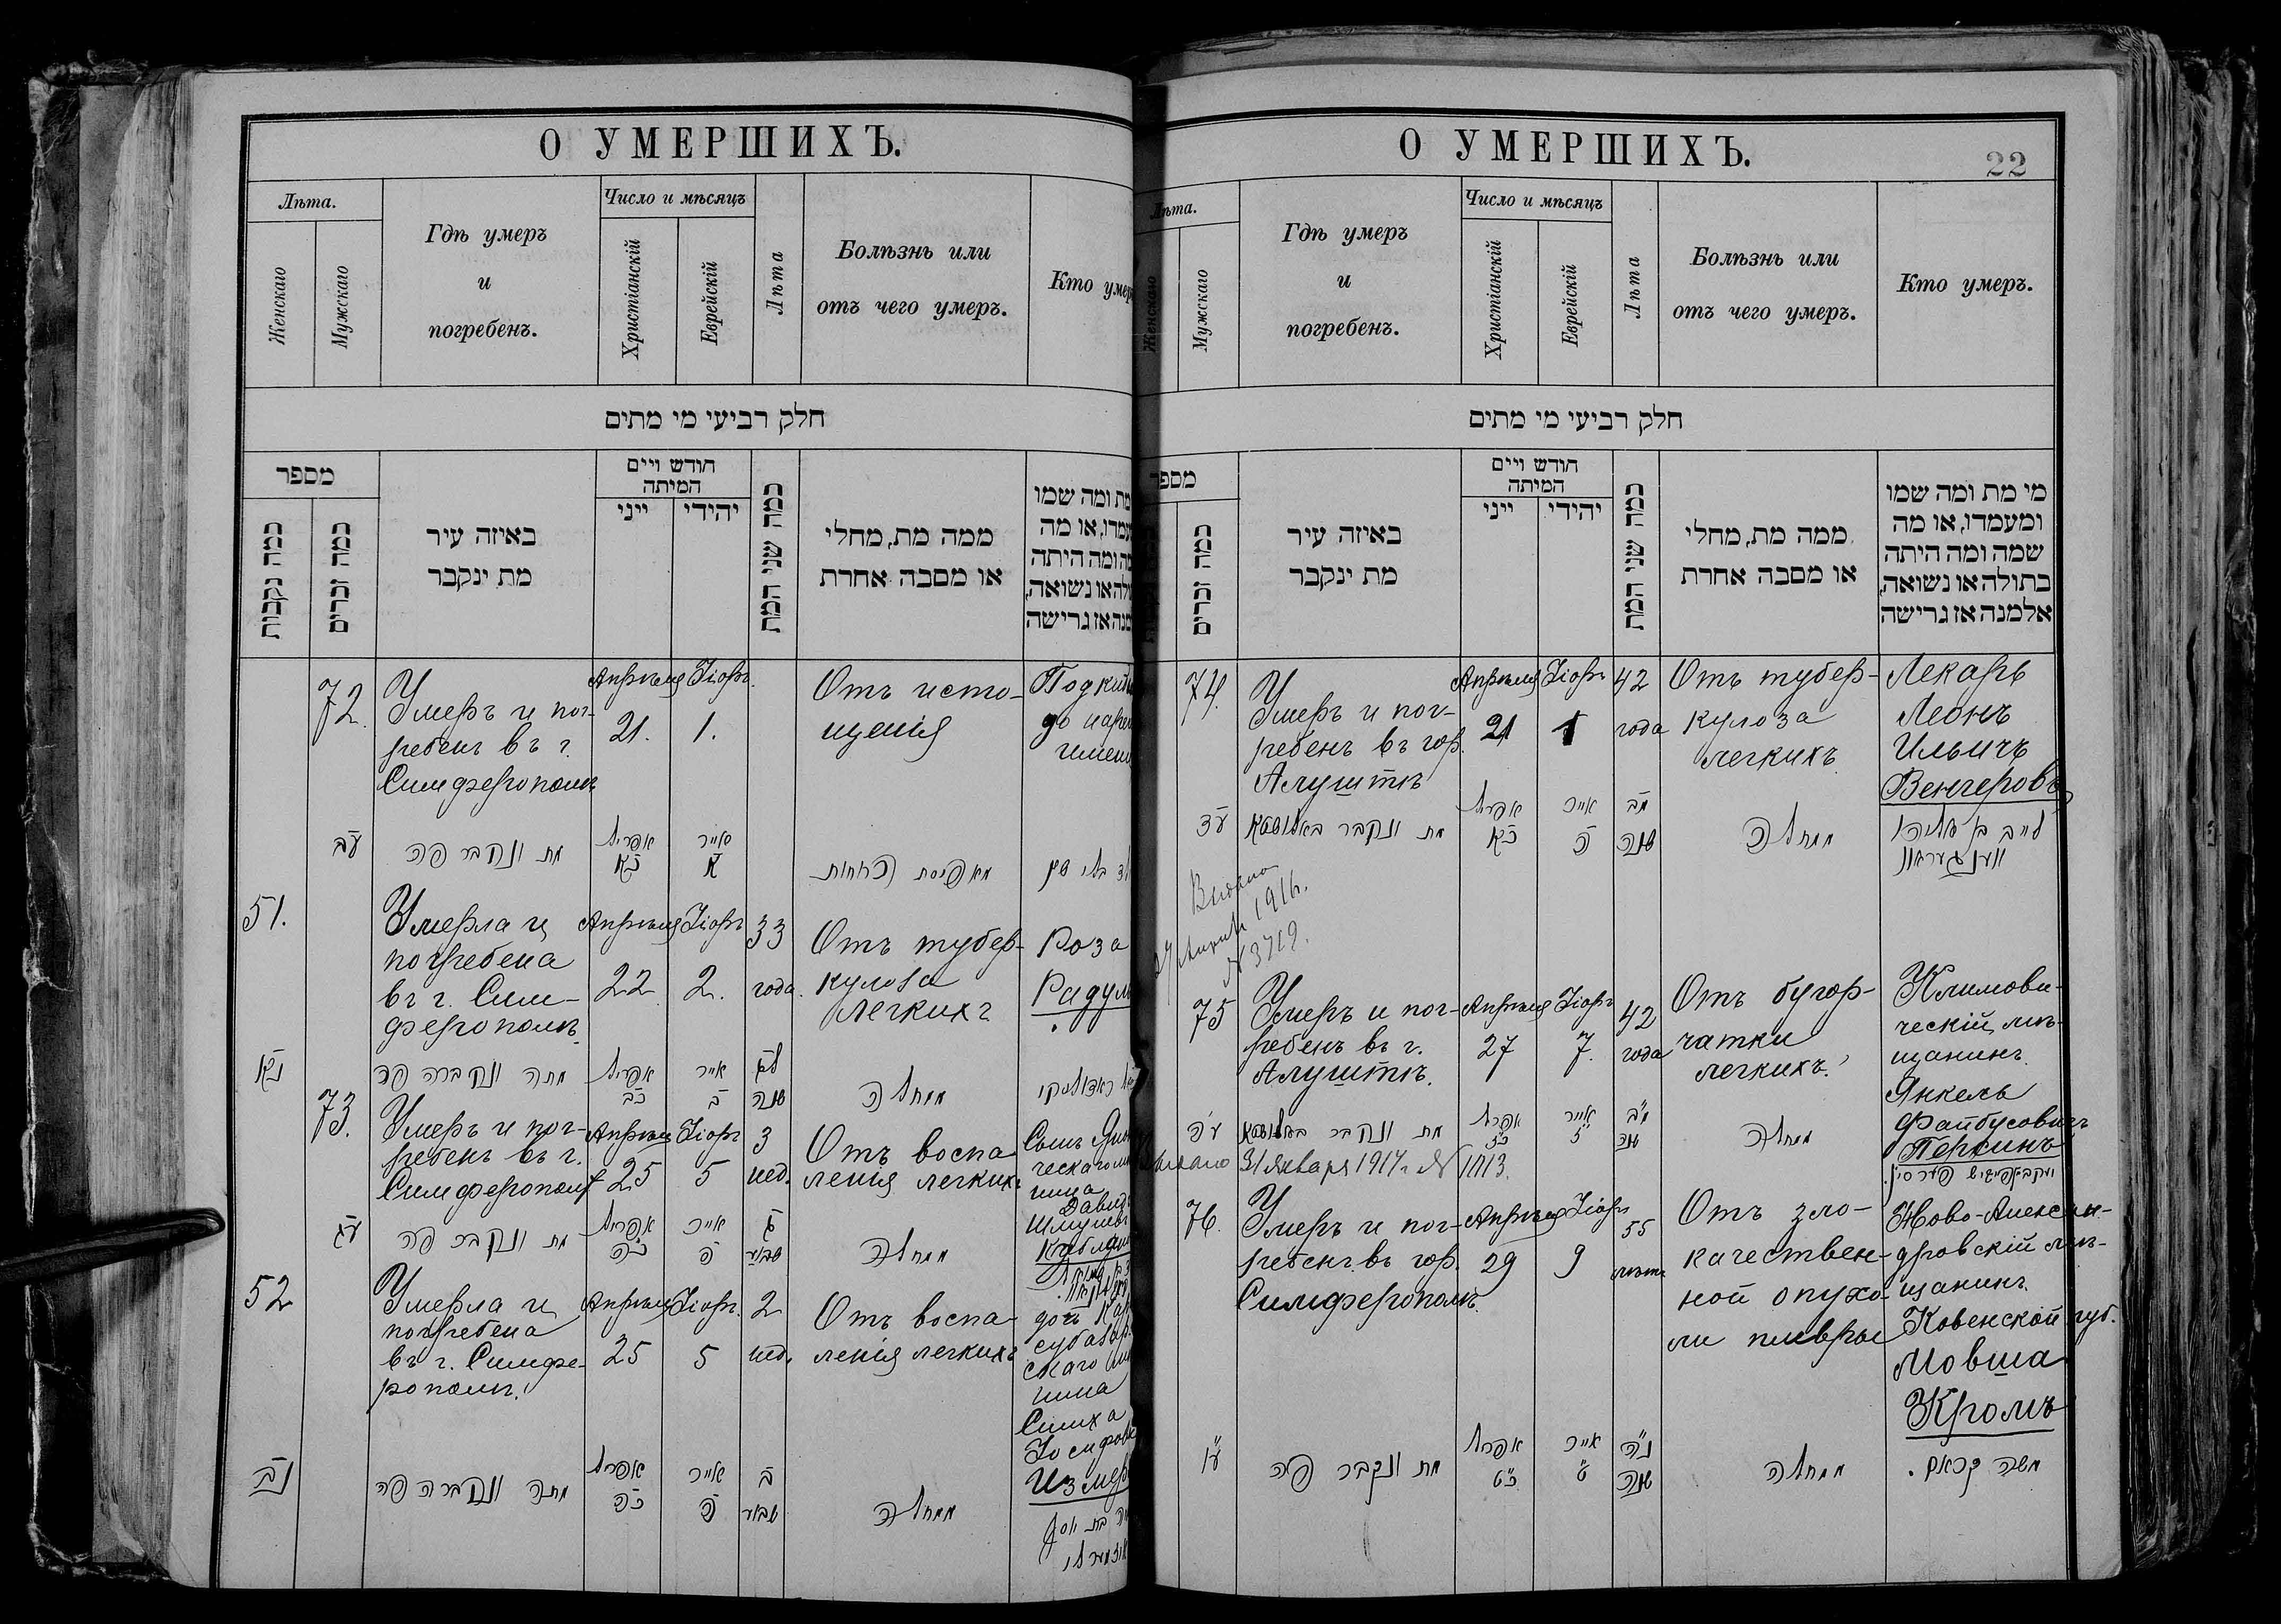 О УМЕРШИХЪ.
Лѣта.
Женскаго
Мужскаго
Гдѣ умеръ
и
погребенъ.
Число и мѣсяцъ
Христіанскій
Еврейскій
Лѣта
Болѣзнь или
отъ чего умеръ.
Кто умер
חלק רביעי מי מתים
מספר
כמה נקבות
כמה זכרים
באיזה עיר
מת ינקבר
חודש ויים
המיתה
ייני
יהידי
כמה שני המת
ממה מת, מחלי
או מסבה אחרת
מת ומה שמו
עמדו, או מה
מה ומה היתה
ולה או נשואה,
מנה אז גרישה
72.
Умеръ и пог-
ребенъ въ г.
Симферополѣ
Апрѣля
21.
Ііоръ.
1.
Отъ исто-
щенія
ע״ב
מת ונקבר פה
אפריל
כ״א
אייר
א
51.
Умерла и
погребена
въ г. Сим-
ферополѣ
Апрѣля
22
Ііоръ
2.
33
года.
Отъ тубер-
кулоза
легкихъ
Роза
Радул
נ״א
מתה ונקברה פה
אפריל
כ״ב
אייר
ב
ל״ג
שנה
ממחלה
73.
Умеръ и пог-
ребенъ въ г.
Симферополѣ
Апрѣля
25
Ііоръ
5
3
нед.
Отъ воспа-
ленія легкихъ
Сынъ
ческаго
нина
Давид
ע״ג
מת ונקבר פה
אפריל
כ״ה
אייר
ה
ג
שבוע
ממחלה
52
Умерла и
погребена
въ г. Симфе-
рополѣ.
Апрѣля
25
Ііоръ.
5
2
нед.
Отъ воспа-
ленія легкихъ
дочь Кар
субазар
скаго
нина
Симха
Іосифов
Измер
נ״ב
מתה ונקברה פה
אפריל
כ״ה
אייר
ה
ב
שבוע
ממחלה
О УМЕРШИХЪ.
22
Лѣта.
Женскаго
Мужскаго
Гдѣ умеръ
и
погребенъ.
Число и мѣсяцъ
Христіанскій
Еврейскій
Лѣта
Болѣзнь или
отъ чего умеръ.
Кто умеръ.
חלק רביעי מי מתים
מספר
כמה זכרים
באיזה עיר
מת ינקבר
חודש ויים
המיתה
ייני
יהידי
כמה שני המת
ממה מת, מחלי
או מסבה אחרת
מי מת ומה שמו
ומעמדו, או מה
שמה ומה היתה
בתולה או נשואה,
אלמנה אז גרישה
74.
Умеръ и пог-
ребенъ въ гор.
Алуштѣ
Апрѣля
21
Ііоръ
1
42
года
Отъ тубер-
кулоза
легкихъ
Лекарь
Леонъ
Ильичъ
Венгеровъ
ע״ד
מת ונקבר באלושטא
אפריל
כ״א
אייר
מ״ב
שנה
ממחלה
לייב בן אליהו
ווענגעראוו
Выдано
1916г.
№ 3719.
75
Умеръ и пог-
ребенъ въ г.
Алуштѣ.
Апрѣля
27
Ііоръ
7.
42
года
Отъ бугор-
чатки
легкихъ.
Климови-
ческій мѣ-
щанинъ
Янкель
Файбусовичъ
Перкинъ
ע״ה
מת ונקבר באלושטא
אפריל
כ״ז
אייר
ז
מ״ב
שנה
ממחלה
Выдано 31 января 1917г. № 1113.
76.
Умеръ и пог-
ребенъ въ гор.
Симферополѣ.
Апрѣля
29
Ііоръ
9
55
лѣтъ
Отъ зло-
качествен-
ной опухо-
ли плевры
Ново-Алексан-
дровскій мѣ-
щанинъ
Ковенской губ.
Мовша
Кромъ
ע״ו
מת ונקבר פה
אפריל
כ״ט
אייר
ט
נ״ה
שנה
ממחלה
משה קראם.